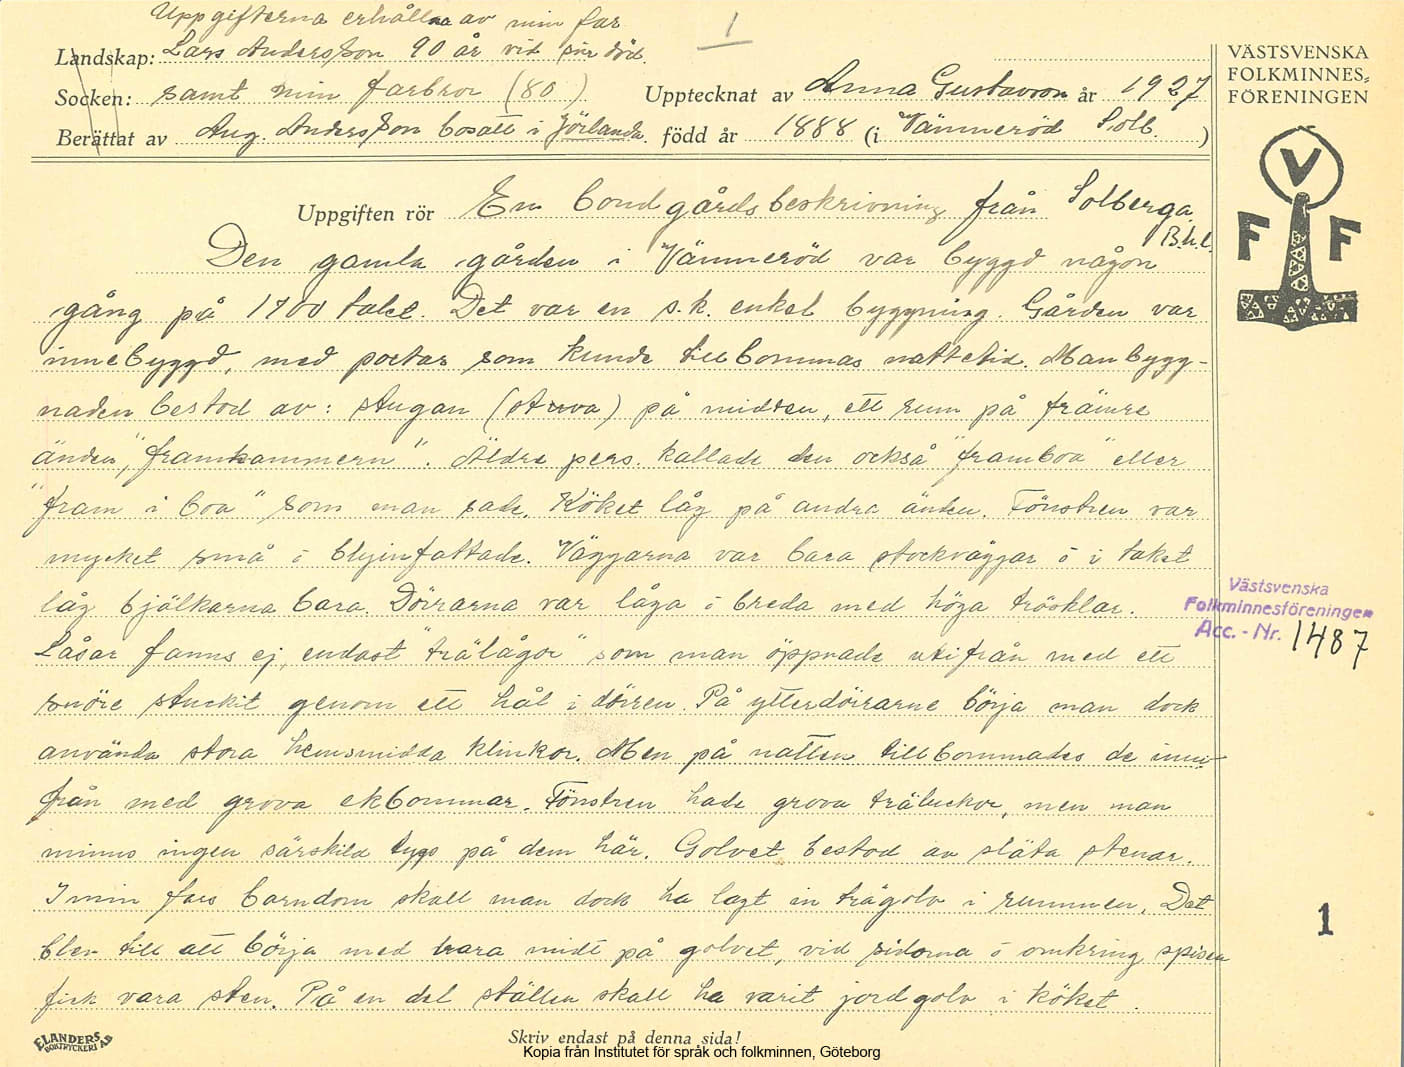 Uppgifterna erhållna av min far
1
Landskap: Lars Andersson 90 år vid sin död.
Socken: samt min farbror (80) Upptecknat av Anna Gustavsson år 1927
Berättat av Aug. Andersson bosatt i Jörlanda. född år 1888 (i Vämmeröd Solb.)
VÄSTSVENSKA
FOLKMINNES-
FÖRENINGEN
V
F F
Uppgiften rör En bondgårdsbeskrivning från Solberga
B.h.l.
Den gamla gården i Vämmeröd var byggd någon
gång på 1700 talet. Det var en s.k. enkel byggning. Gården var
innebyggd, med portar som kunde tillbommas nattetid. Manbygg-
naden bestod av: stugan (stuva) på midten, ett rum på främre
änden, "framkammern". Äldre pers. kallade den också "framboa" eller
"fram i boa" som man sade. Köket låg på andra änden. Fönstren var
mycket små o blyinfattade. Väggarna var bara stockväggar o i taket
låg bjälkarna bara. Dörrarna var låga o breda med höga trösklar.
Låsar fanns ej, endast "trälågor" som man öppnade utifrån med ett
snöre stuckit genom ett hål i dörren. På ytterdörrarne börja man dock
använda stora hemsmidda klinkor. Men på natten tillbommades de inni-
från med grova ekbommar. Fönstren hade grova träluckor, men man
minns ingen särskild tygs på dem här. Golvet bestod av släta stenar.
I min fars barndom skall man dock ha lagt in trägolv i rummen. Det
blev till att börja med bara midt på golvet, vid sidorna o omkring spisen
fick vara sten. På en del ställen skall ha varit jordgolv i köket.
Västsvenska
Folkminnesföreningen
Acc. - Nr. 1487
1
ELANDERS
BOKTRYCKERI AB
Skriv endast på denna sida!
Kopia från Institutet för språk och folkminnen, Göteborg